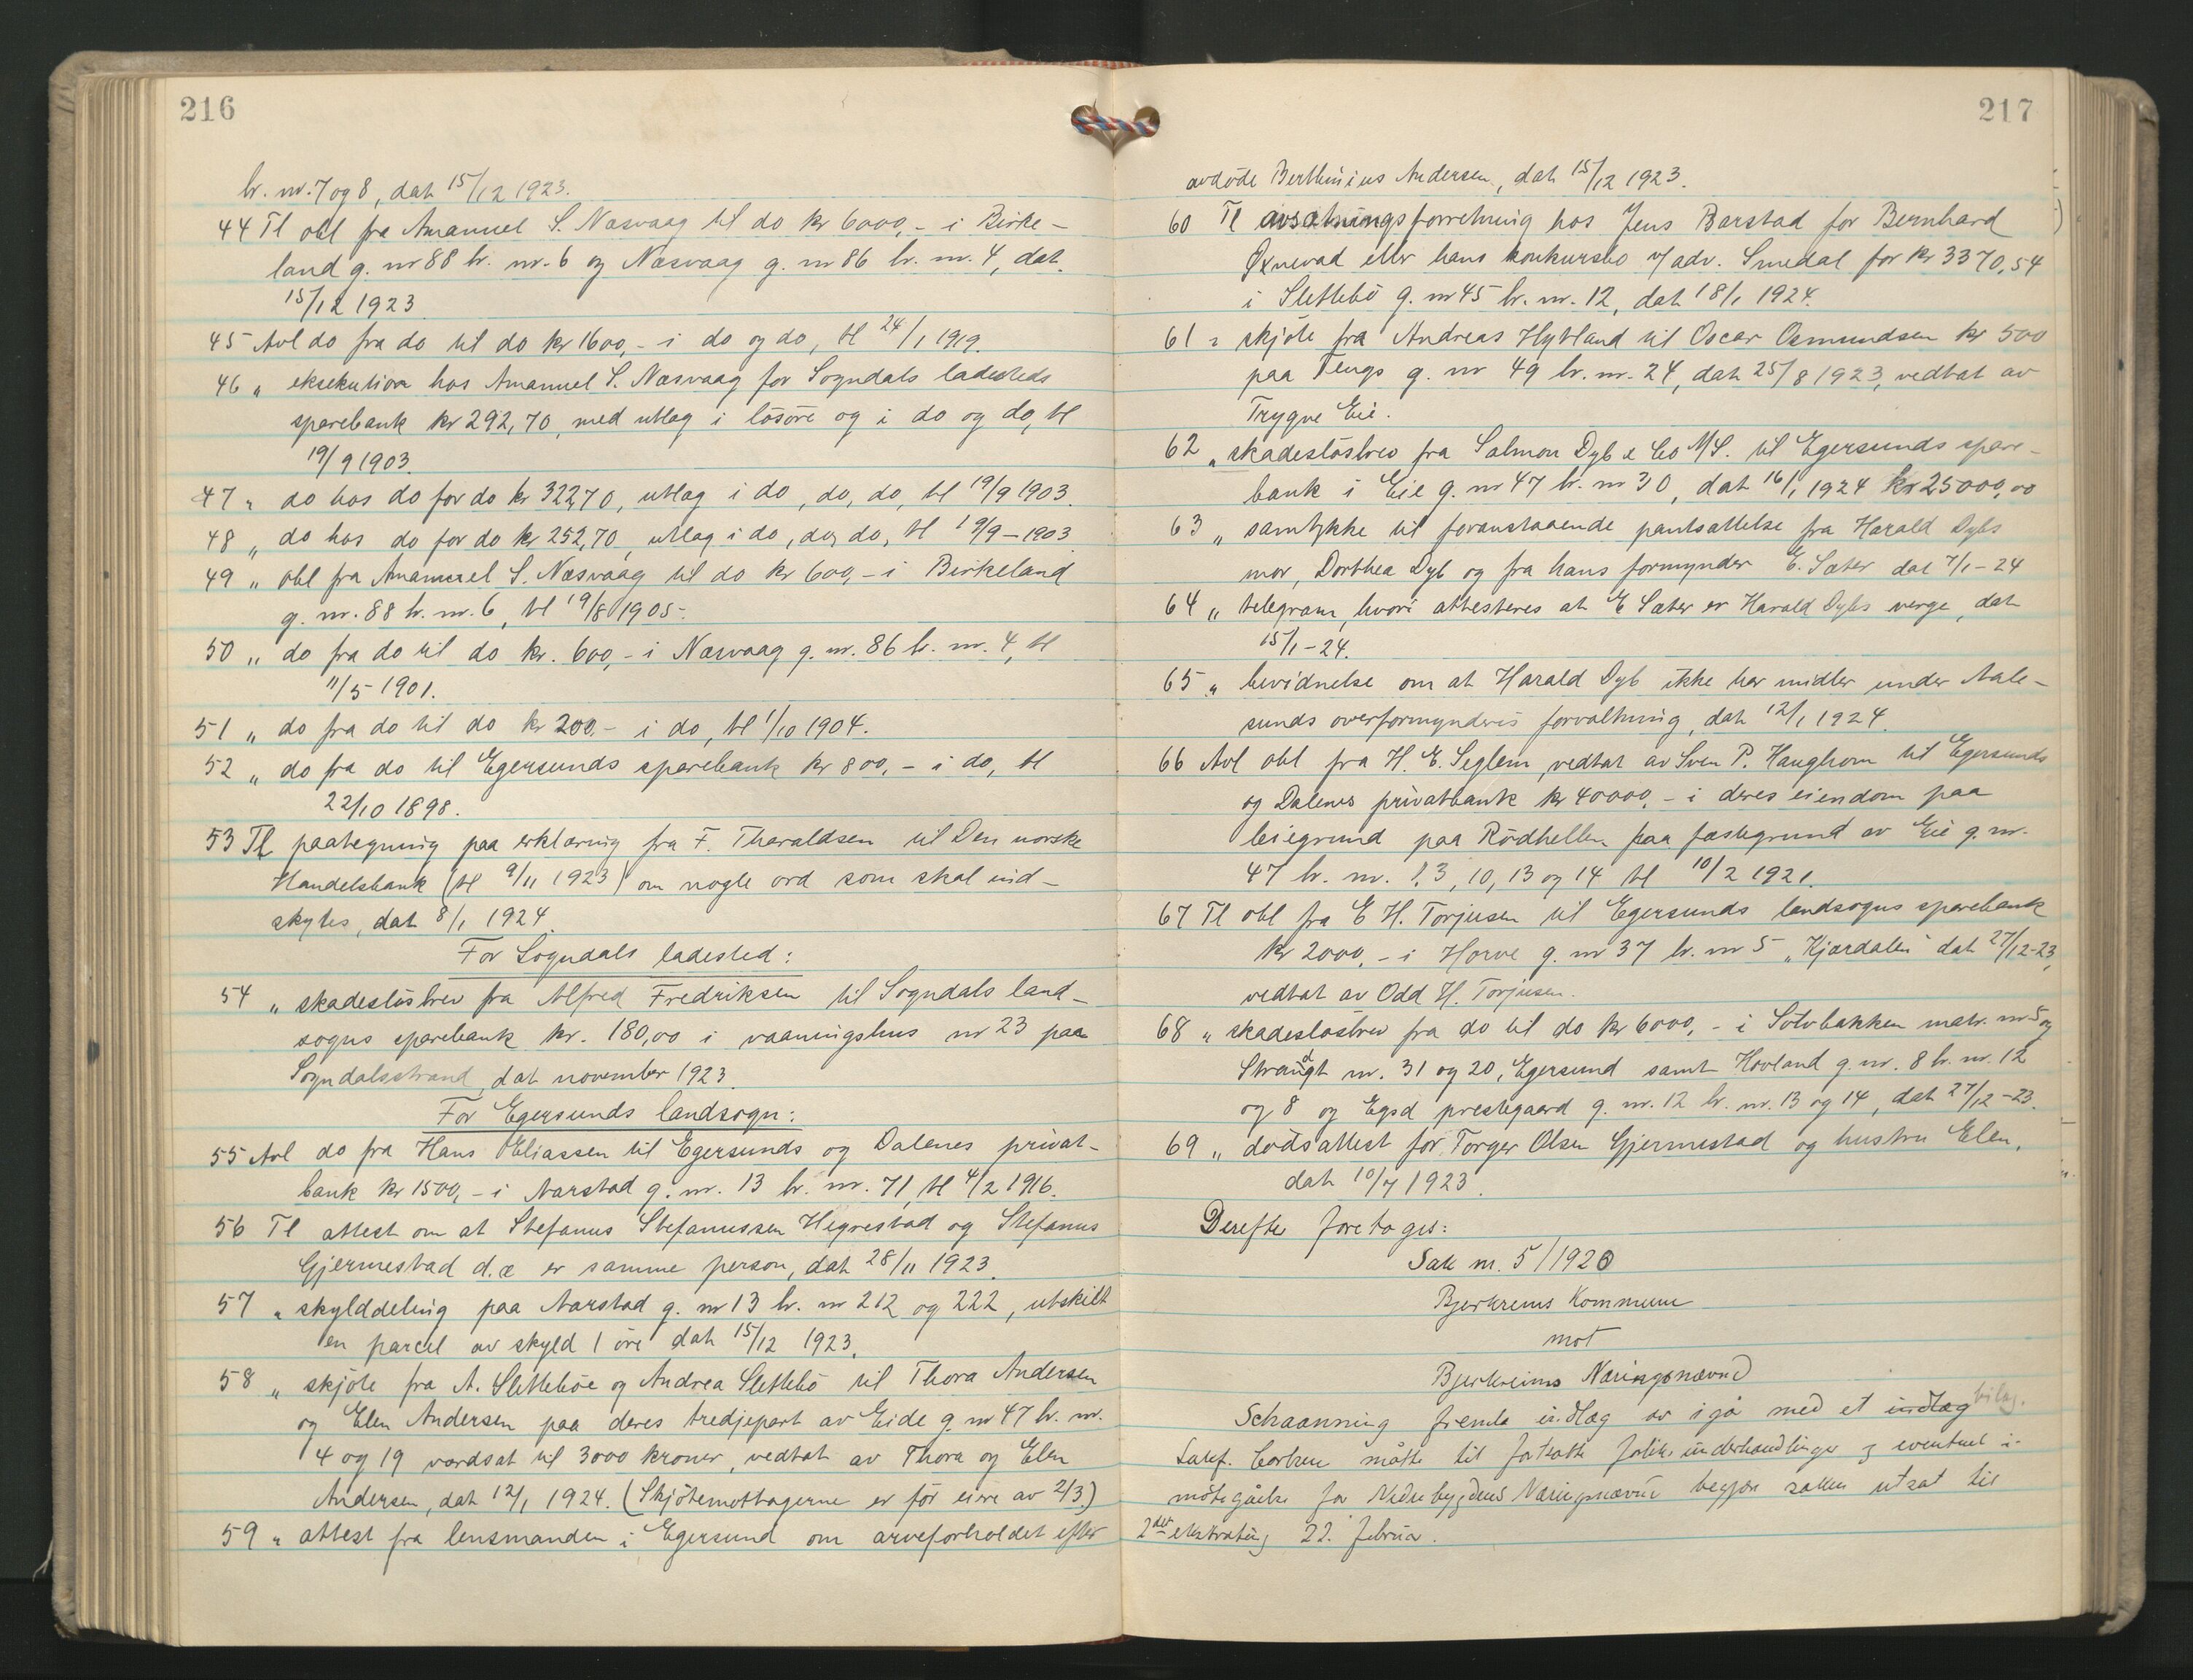 216
br. nr. 7 og 8, dat 15/12 1923.
44 Tl obl fra Amanuel S. Næsvaag til do kr 6000,- i Birke-
land g. nr 88 br. nr. 6 og Næsvaag g. nr 86 br. nr. 4, dat.
15/12 1923.
45 Avl do fra do til do kr 1600,- i do og do, tl 24/1 1919.
46 " eksekution hos Amanuel S. Næsvaag for Sogndals ladesteds
sparebank kr 292,70, med utlæg i løsøre og i do og do, tl
19/9 1903.
47 " do hos do for do kr 322,70, utlæg i do, do, do, tl 19/9 1903.
48 " do hos do for do kr 252,70, utlæg i do, do, do, tl 19/9-1903
49 " obl fra Amanuel S. Næsvaag til do kr 600,- i Birkeland
g. nr. 88 br. nr. 6, tl 19/8 1905.
50 " do fra do til do kr. 600,- i Næsvaag g. nr. 86 br. nr. 4, tl
11/5 1901.
51 " do fra do til do kr 200,- i do, tl 1/10 1904.
52 " do fra do til Egersunds sparebank kr 800,- i do, tl
22/10 1898.
53 Tl paategning paa erklæring fra F. Tharaldsen til Den norske
Handelsbank (tl 9/11 1923) om nogle ord som skal ind-
skytes, dat 8/1 1924.
For Sogndals ladested:
54 " skadesløsbrev fra Alfred Fredriksen til Sogndals land-
sogns sparebank kr. 180,00 i vaaningshus nr 23 paa
Sogndalsstrand, dat november 1923.
For Egersunds landsogn:
55 Avl do fra Hans Eliassen til Egersunds og Dalenes privat-
bank kr 1500,- i Aarstad g. nr. 13 br. nr. 71, tl 4/2 1916.
56 Tl attest om at Stefanus Stefanussen Hegrestad og Stefanus
Gjermestad d.æ er samme person, dat 28/11 1923.
57 " skylddeling paa Aarstad g. nr 13 br. nr 212 og 222, utskilt
en parcel av skyld 1 øre dat 15/12 1923.
58 " skjøte fra A. Slettebøe og Andrea Slettebø til Thora Andersen
og Elen Andersen paa deres tredjepart av Eide g. nr 47 br. nr.
4 og 19 værdsat til 3000 kroner, vedtat av Thora og Elen
Andersen, dat 12/1 1924. (Skjøtemottagerne er før eiere av 2/3.)
59 " attest fra lensmanden i Egersund om arveforholdet efter
217
avdøde Berthinius Andersen, dat 15/12 1923.
60 Tl avsætningsforretning hos Jens Barstad for Bernhard
Øxnevad eller hans konkursbo v/ adv. Smedal for kr 3370,54
i Slettebø g. nr 45 br. nr. 12, dat 18/1 1924.
61 " skjøte fra Andreas Hytland til Oscar Osmundsen kr 500
paa Tengs g. nr 49 br. nr. 24, dat 25/8 1923, vedtat av
Trygve Eie.
62 " skadesløsbrev fra Salmon Dyb & Co A/S. til Egersunds spare-
bank i Eie g. nr 47 br. nr 30, dat 16/1 1924 kr 25000,00
63 " samtykke til foranstaaende pantsættelse fra Harald Dybs
mor, Dorthea Dyb og fra hans formynder E. Sæter dat 7/1-24
64 " telegram, hvori attesteres at E Sæter er Harald Dybs verge, dat
15/1-24.
65 " bevidnelse om at Harald Dyb ikke har midler under Aale-
sunds overformynderis forvaltning, dat 12/1 1924.
66 Avl obl fra H. E. Seglem, vedtat av Sven P. Haughom til Egersunds
og Dalenes privatbank kr 40000,- i deres eiendom paa
leiegrund paa Rødhellen paa fæstegrund av Eie g. nr.
47 br. nr. 3, 10, 13 og 14 tl 10/2 1921.
67 Tl obl fra E H. Torjusen til Egersunds landsogns sparebank
kr 2000,- i Horve g. nr 37 br. nr 5 "Kjærdalen" dat 27/12-23,
vedtat av Odd H. Torjusen.
68 " skadesløsbrev fra do til do kr 6000,- i Solvbakken matr. nr 5 og
Strandgt nr. 31 og 20, Egersund samt Hovland g. nr. 8 br. nr. 12
og 8 og Egsd prestegaard g. nr. 12 br. nr. 13 og 14, dat 27/12-23.
69 " dødsattest for Torger Olsen Gjermestad og hustru Elen,
dat 10/7 1923.
Derefter foretoges:
Sak nr. 5/1920
Bjerkreims Kommune
mot
Bjerkreims Næringsnævnd
Schaanning fremla indlæg av igår med et indlæg bilag.
måtte til fortsatte forliksunderhandlinger og eventuel i-
møtegåelse for Næringsnævnd begjære saken utsat til
2det ekstrating 22. februar.